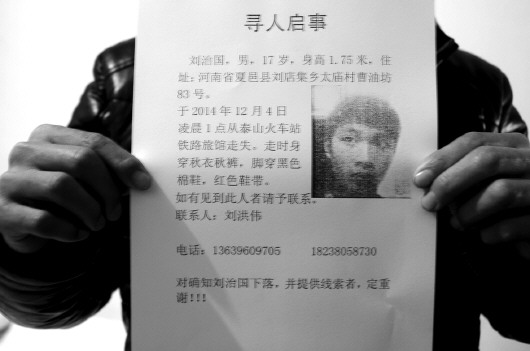 寻人启事
刘治国，男，17岁，身高1.75米，住
址：河南省夏邑县刘店集乡太庙村曹油坊
83号。
于2014年12月4日
凌晨1点从泰山火车站
铁路旅馆走失。走时身
穿秋衣秋裤，脚穿黑色
棉鞋，红色鞋带。
如有见到此人者请予联系。
联系人：刘洪伟
电话：13639609705 18238058730
对确知刘治国下落，并提供线索者，定重
谢!!!